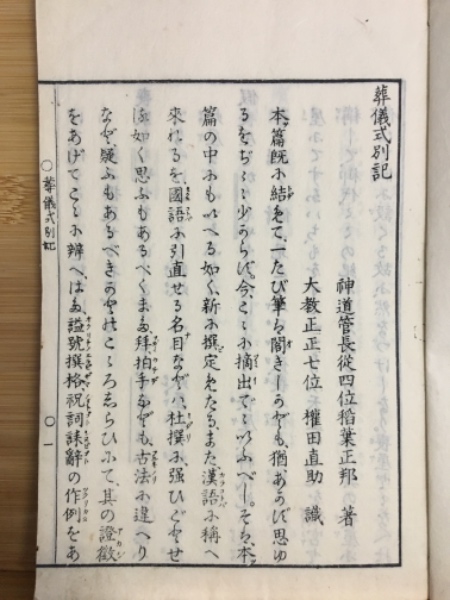 葬儀式別記
神道管長從四位稻葉正邦 著
大教正正七位 權田直助 識
本篇既に結びて、一たび筆は閣きしかども、猶あかず思ゆ
るをぢ〻少からず。今、こ〻に摘出でゝいふべし。そは、本
篇の中にもいへる如く、新に撰定めたる、また、漢語に稱へ
來れるを、國語に引直せる名目などは、杜撰に、强ひごとせ
る如く思ふもあるべく、また、拜拍手なども、古法に違へり
など疑ふもあるべきかとのこゝろしらひにて、其の證徵
をあげてこゝに辨へ、はた、謚號撰格祝詞誄辭の作例をあ
〇葬儀式別記
〇一